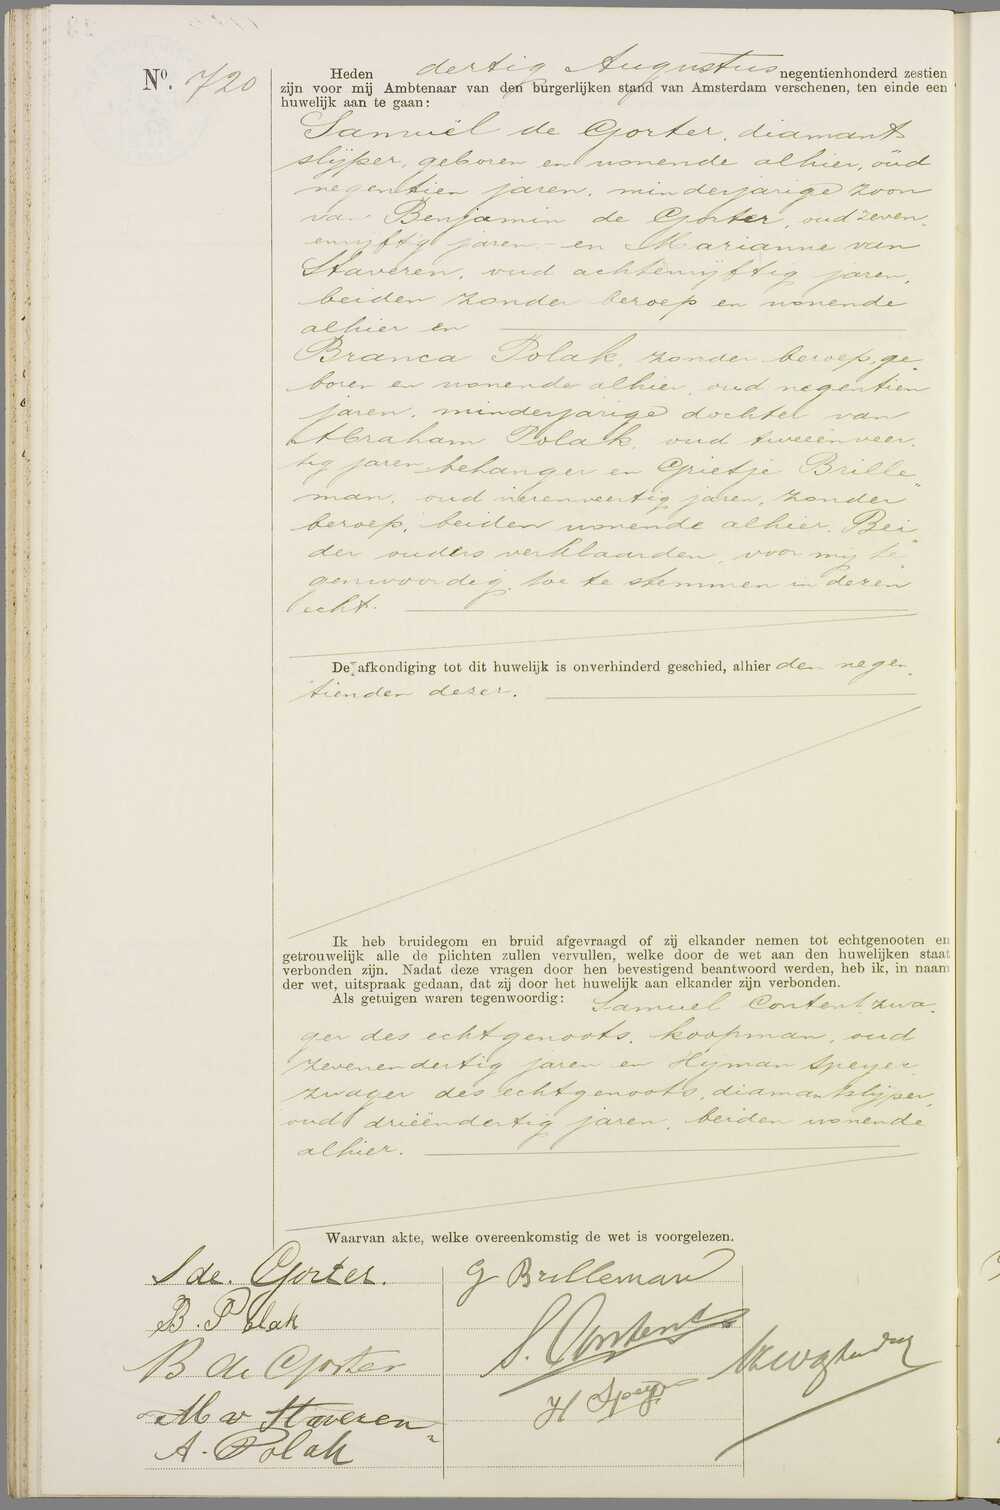 No. 720
Heden dertig Augustus negentienhonderd zestien
zijn voor mij Ambtenaar van den burgerlijken stand van Amsterdam verschenen, ten einde een
huwelijk aan te gaan:
Samuël de Gorter, diamant
slijper, geboren en wonende alhier, oud
negentien jaren, minderjarige zoon
van Benjamin de Gorter, oud zeven
envijftig jaren en Marianne van
Staveren, oud achtenvijftig jaren,
beiden zonder beroep en wonende
alhier en
Branca Polak, zonder beroep, ge
boren en wonende alhier, oud negentien
jaren, minderjarige dochter van
Abraham Polak, oud tweeënveer
tig jaren behanger en Grietje Brille
man, oud vierenveertig jaren, zonder
beroep, beiden wonende alhier. Bei
der ouders verklaarden, voor mij te
genwoordig, toe te stemmen in dezen
echt.
De afkondiging tot dit huwelijk is onverhinderd geschied, alhier den negen
tienden dezer.
Ik heb bruidegom en bruid afgevraagd of zij elkander nemen tot echtgenooten en
getrouwelijk alle de plichten zullen vervullen, welke door de wet aan den huwelijken staat
verbonden zijn. Nadat deze vragen door hen bevestigend beantwoord werden, heb ik, in naam
der wet, uitspraak gedaan, dat zij door het huwelijk aan elkander zijn verbonden.
Als getuigen waren tegenwoordig: Samuel Content, zwa
ger des echtgenoots, koopman, oud
zevenendertig jaren en Hyman Speyer,
zwager des echtgenoots, diamantslijper,
oud drieëndertig jaren, beiden wonende
alhier.
Waarvan akte, welke overeenkomstig de wet is voorgelezen.
S de. Gorter.
B. Polak
B de Gorter
M v Staveren
A. Polak
G Brilleman
S. Content
H Speyer